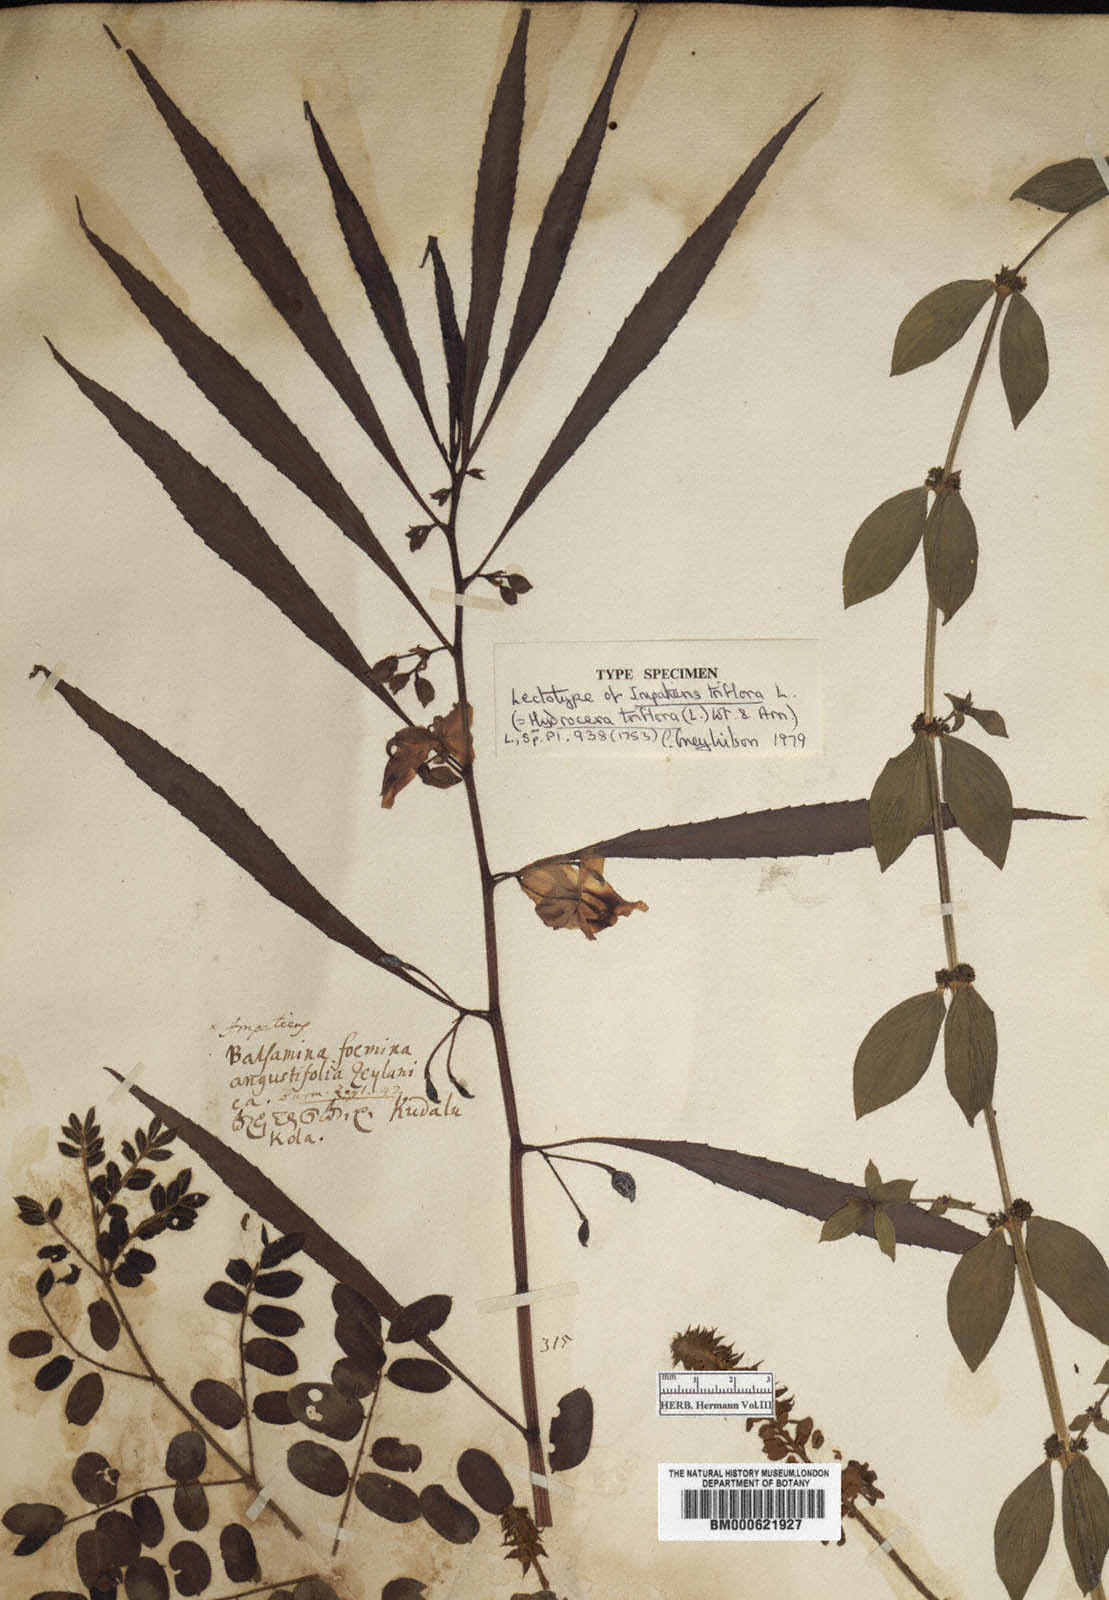 TYPE SPECIMEN
Lectotype of Impatiens triflora L.
(= Hydrocera triflora (L.) Wt. & Arn)
L., Sp. Pl. 938 (1753) 1979
× Impatiens
Balsamina foemina
angustifolia Zeylani
ca. Burm. Zeyl.
Kudalu
Kola.
315
mm 1 2 3
HERB. Hermann Vol.III
THE NATURAL HISTORY MUSEUM, LONDON
DEPARTMENT OF BOTANY
BM000621927